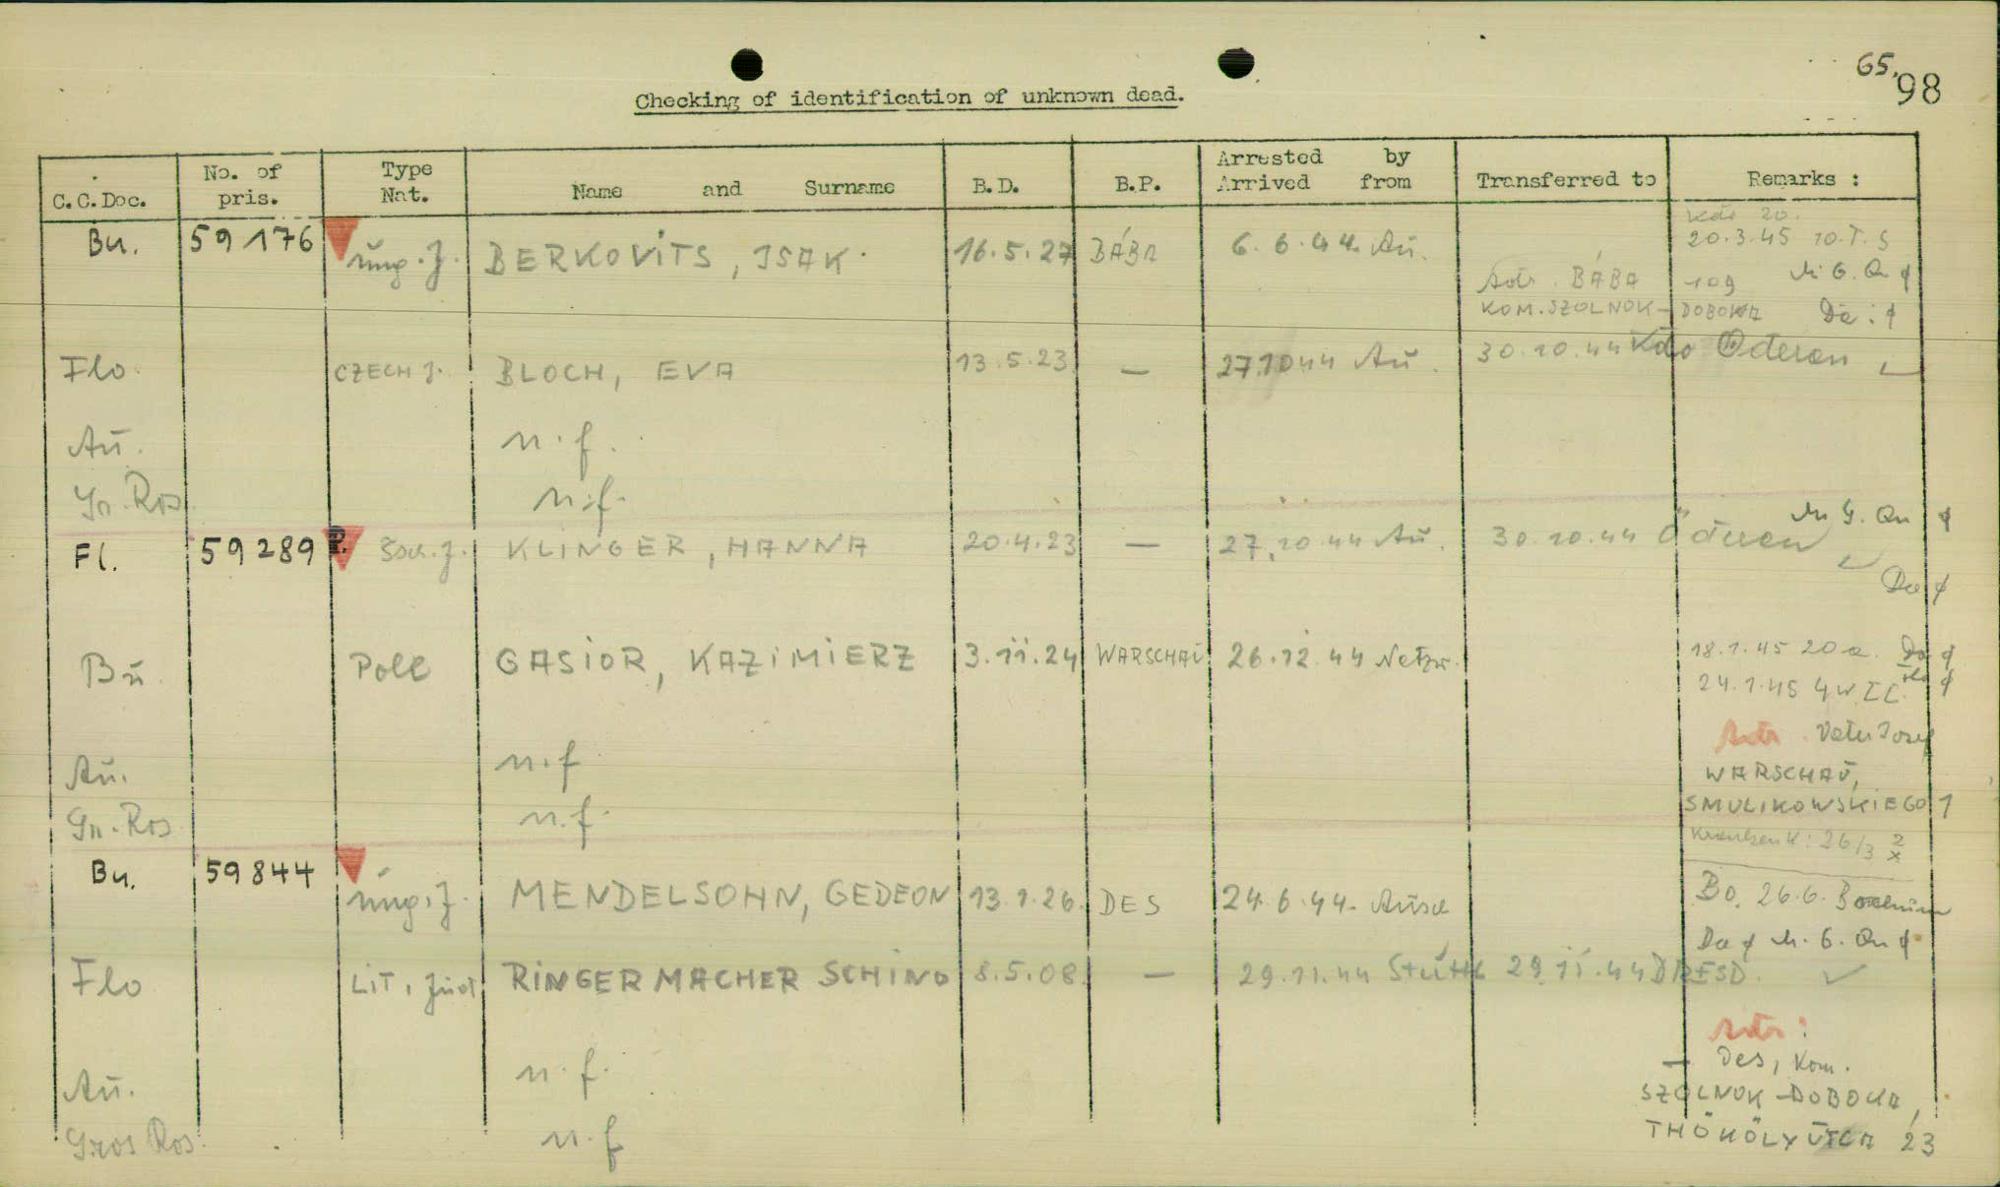 65. 98
Checking of identification of unknown dead.
C.C.Doc. No. of pris. Type Nat. Name and Surname B.D. B.P. Arrested by Arrived from Transferred to Remarks :
Kdo 20.
Bu. 59176 ung. J. BERKOVITS, ISAK. 16.5.27 BÁBA 6.6.44. Au. 20.3.45 10.T.S
Adr. BÁBA 109 M G. Qu ¢
KOM. SZOLNOK-DOBOKA Da: ¢
Flo CZECH J. BLOCH, EVA 13.5.23 — 27.10 44 Au. 30.10.44 Kdo Oderan
Au. n.f.
Gr. Ros n.f.
M G. Qu ¢
Fl. 59289 P. J. KLINGER, HANNA 20.4.23 — 27.10.44 Au. 30.10.44
Da ¢
Bu. Pole GASIOR, KAZIMIERZ 3.11.24 WARSCHAU 26.12.44 Netzw. 18.1.45 20a. Da ¢
24.1.45 ¢
Adr. Vater Josef
Au. n.f WARSCHAU,
Gr. Ros n.f. SMULIKOWSKIEGO 1
26/3
Bu. 59844 ung. J. MENDELSOHN, GEDEON 13.1.26. DES 24.6.44. Ausch Bo. 26.6. Bochum
Da ¢ M. G. Qu ¢
Flo LIT. Jüd RINGERMACHER SCHINO 8.5.08. — 29.11.44 Stutth 29.11.44 DRESD.
Adr:
— Des, Kom.
Au. n.f. SZOLNOK-DOBOKA,
Gros Ros. n.f THÖKÖLY UTCA 23